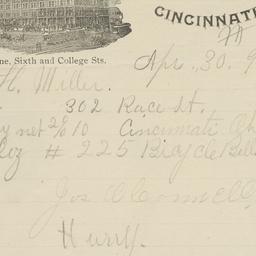 CINCINNAT
ne, Sixth and College Sts.
Apr. 30. 9
H. Miller.
302 Race St.
net 2%10 Cincinnati
doz # 225 Bicycle Bell
Jos O'Connell
Hurry.